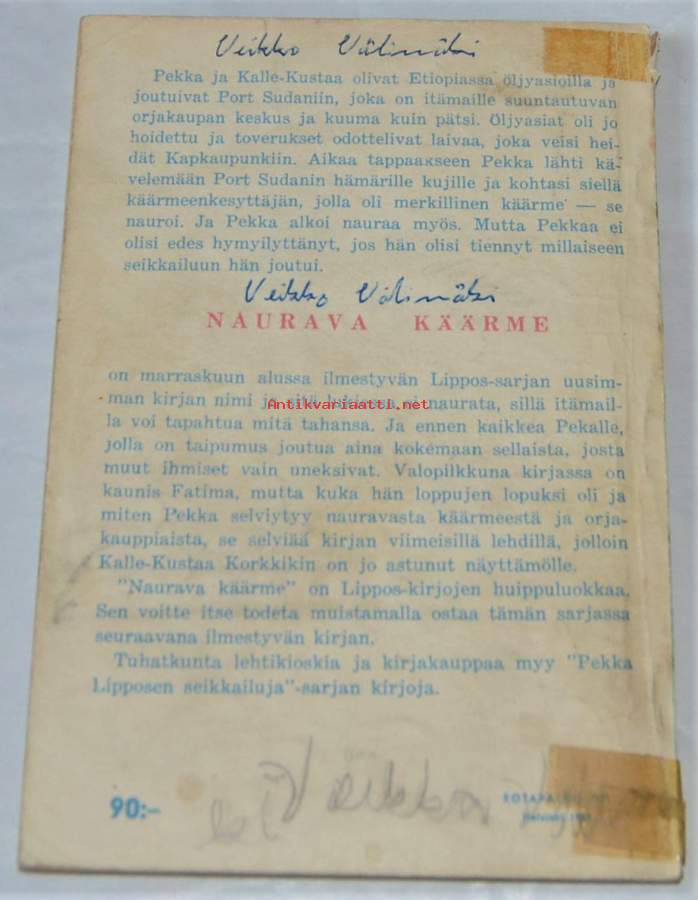 Veikko Välimäki
Pekka ja Kalle-Kustaa olivat Etiopiassa öljyasioilla ja
joutuivat Port Sudaniin, joka on itämaille suuntautuvan
orjakaupan keskus ja kuuma kuin pätsi. Öljyasiat oli jo
hoidettu ja toverukset odottelivat laivaa, joka veisi hei-
dät Kapkaupunkiin. Aikaa tappaakseen Pekka lähti kä-
velemään Port Sudanin hämärille kujille ja kohtasi siellä
käärmeenkesyttäjän, jolla oli merkillinen käärme — se
nauroi. Ja Pekka alkoi nauraa myös. Mutta Pekkaa ei
olisi edes hymyilyttänyt, jos hän olisi tiennyt millaiseen
seikkailuun hän joutui.
Veikko Välimäki
NAURAVA KÄÄRME
on marraskuun alussa ilmestyvän Lippos-sarjan uusim-
man kirjan nimi ja sitä lukiessa ei naurata, sillä itämail-
Antikvariaatti.net
la voi tapahtua mitä tahansa. Ja ennen kaikkea Pekalle,
jolla on taipumus joutua aina kokemaan sellaista, josta
muut ihmiset vain uneksivat. Valopilkkuna kirjassa on
kaunis Fatima, mutta kuka hän loppujen lopuksi oli ja
miten Pekka selviytyy nauravasta käärmeestä ja orja-
kauppiaista, se selviää kirjan viimeisillä lehdillä, jolloin
Kalle-Kustaa Korkkikin on jo astunut näyttämölle.
"Naurava käärme" on Lippos-kirjojen huippuluokkaa.
Sen voitte itse todeta muistamalla ostaa tämän sarjassa
seuraavana ilmestyvän kirjan.
Tuhatkunta lehtikioskia ja kirjakauppaa myy "Pekka
Lipposen seikkailuja"-sarjan kirjoja.
Veikko
90:-
Helsinki